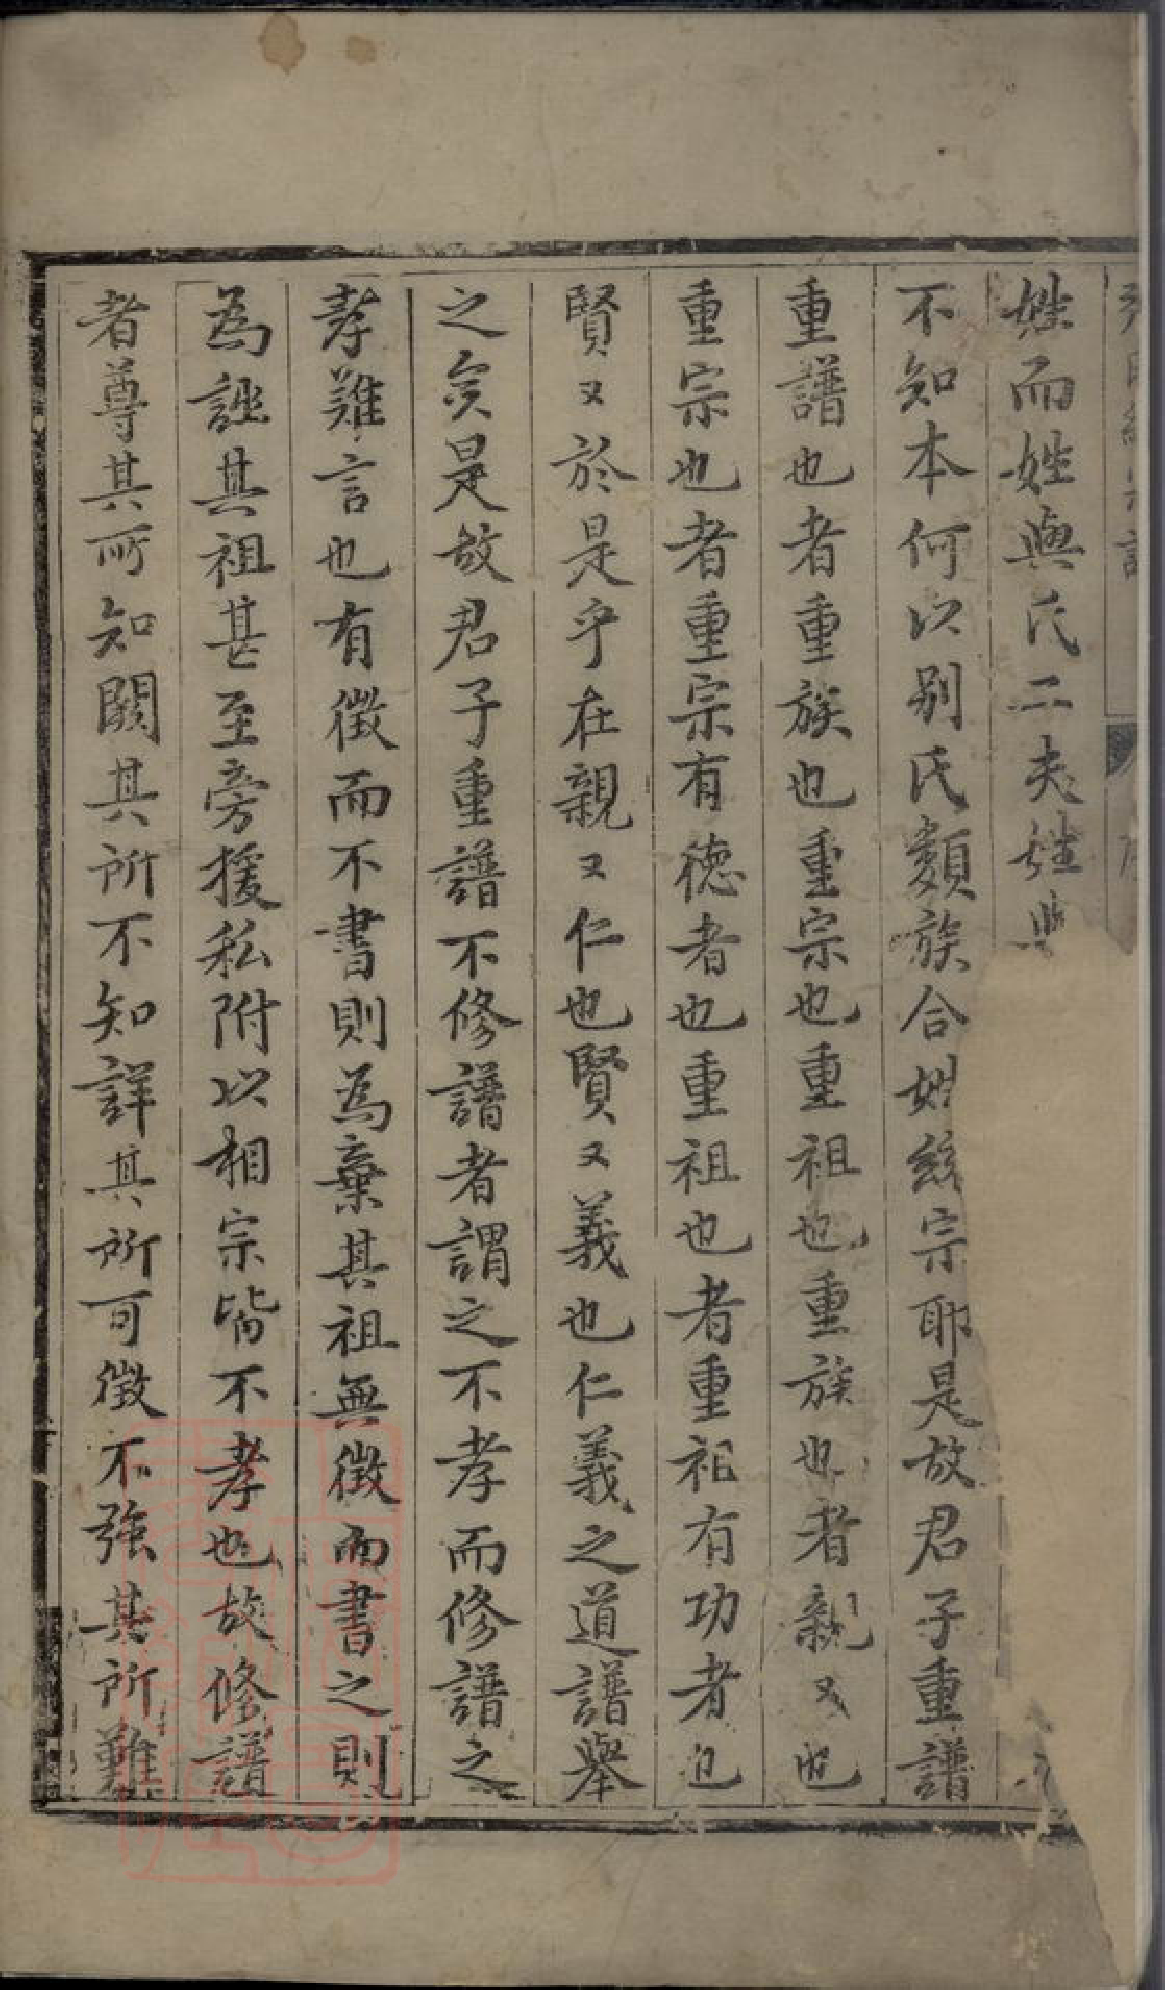 姓而姓與氏二夫姓與
不知本何以别氏類族合姓緫宗耶是故君子重譜
重譜也者重族也重宗也重祖也重族也者親又也
重宗也者重宗有德者也重祖也者重祖有功者也
賢又於是乎在親又仁也賢又義也仁義之道譜舉
之矣是故君子重譜不修譜者謂之不孝而修譜之
孝難言也有徵而不書則為棄其祖無徵而書之則
為誣其祖甚至旁援私附以相宗皆不孝也故修譜
者尊其所知闕其所不知詳其所可徵不強其所難